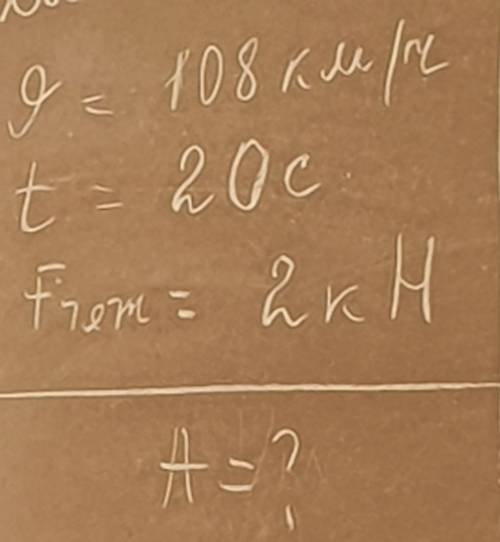 ϑ = 108 км/ч
t = 20 с
Fтет = 2 кН
A = ?